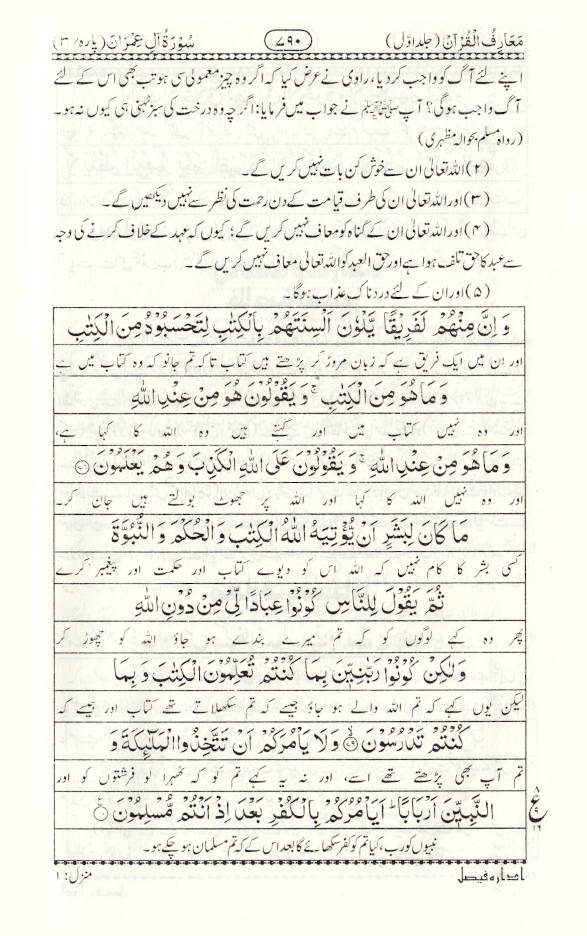 معارف القرآن (جلد اول) ۷۹۰ سورۃ آل عمران (پارہ/۳)
اپنے لئے آگ کو واجب کر دیا، راوی نے عرض کیا کہ اگر وہ چیز معمولی سی ہو تب بھی اس کے لئے
آگ واجب ہوگی؟ آپ ﷺ نے جواب میں فرمایا: اگرچہ وہ درخت کی سبز ٹہنی ہی کیوں نہ ہو۔
(رواہ مسلم بحوالہ مظہری)
(۲) اللہ تعالیٰ ان سے خوش کن بات نہیں کریں گے۔
(۳) اور اللہ تعالیٰ ان کی طرف قیامت کے دن رحمت کی نظر سے نہیں دیکھیں گے۔
(۴) اور اللہ تعالیٰ ان کے گناہ کو معاف نہیں کریں گے؛ کیوں کہ عہد کے خلاف کرنے کی وجہ
سے عبد کا حق تلف ہوا ہے اور حق العبد کو اللہ تعالیٰ معاف نہیں کریں گے۔
(۵) اور ان کے لئے دردناک عذاب ہوگا۔
وَاِنَّ مِنْهُمْ لَفَرِيْقًا يَّلْوٗنَ اَلْسِنَتَهُمْ بِالْكِتٰبِ لِتَحْسَبُوْهُ مِنَ الْكِتٰبِ
اور ان میں ایک فریق ہے کہ زبان مروڑ کر پڑھتے ہیں کتاب تاکہ تم جانو کہ وہ کتاب میں ہے
وَمَا هُوَ مِنَ الْكِتٰبِ ۚ وَيَقُوْلُوْنَ هُوَ مِنْ عِنْدِ اللّٰهِ
اور وہ نہیں کتاب میں اور کہتے ہیں وہ اللہ کا کہا ہے،
وَمَا هُوَ مِنْ عِنْدِ اللّٰهِ ۚ وَيَقُوْلُوْنَ عَلَى اللّٰهِ الْكَذِبَ وَهُمْ يَعْلَمُوْنَ
اور وہ نہیں اللہ کا کہا اور اللہ پر جھوٹ بولتے ہیں جان کر۔
مَا كَانَ لِبَشَرٍ اَنْ يُّؤْتِيَهُ اللّٰهُ الْكِتٰبَ وَالْحُكْمَ وَالنُّبُوَّةَ
کسی بشر کا کام نہیں کہ اللہ اس کو دیوے کتاب اور حکمت اور پیغمبر کرے
ثُمَّ يَقُوْلَ لِلنَّاسِ كُوْنُوْا عِبَادًا لِّيْ مِنْ دُوْنِ اللّٰهِ
پھر وہ کہے لوگوں کو کہ تم میرے بندے ہو جاؤ اللہ کو چھوڑ کر
وَلٰكِنْ كُوْنُوْا رَبّٰنِيّٖنَ بِمَا كُنْتُمْ تُعَلِّمُوْنَ الْكِتٰبَ وَبِمَا
لیکن یوں کہے کہ تم اللہ والے ہو جاؤ جیسے کہ تم سکھلاتے تھے کتاب اور جیسے کہ
كُنْتُمْ تَدْرُسُوْنَ ۙ۷۹ وَلَا يَاْمُرَكُمْ اَنْ تَتَّخِذُوا الْمَلٰٓئِكَةَ وَ
تم آپ بھی پڑھتے تھے اسے، اور نہ یہ کہے تم کو کہ ٹھہرا لو فرشتوں کو اور
النَّبِيّٖنَ اَرْبَابًا ؕ اَيَاْمُرُكُمْ بِالْكُفْرِ بَعْدَ اِذْ اَنْتُمْ مُّسْلِمُوْنَ
ع
۱۶
نبیوں کو رب، کیا تم کو کفر سکھائے گا بعد اس کے کہ تم مسلمان ہو چکے ہو۔
ادارہ فیصل منزل: ۱